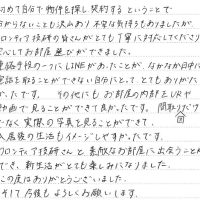 初めて自分で物件を探し契約するということで
分からないことも沢山あり不安な気持ちもありましたが、
フロンティア技研の皆さんがとても丁寧に対応してくださり
安心してお部屋選びができました。
連絡手段の一つにLINEがあったことが、なかなか日中に
電話を取ることができない自分にとって、とてもありがた
かったです。その他にもお部屋の内部をVRや
動画で見ることができて良かったです。間取りだけ
でなく実際の写真を見ることができて、
入居後の生活もイメージしやすかったです。
フロンティア技研さんと素敵なお部屋に出会うことが
でき、新生活がとても楽しみになりました。
この度はありがとうございました。
そして今後もよろしくお願いします。
図